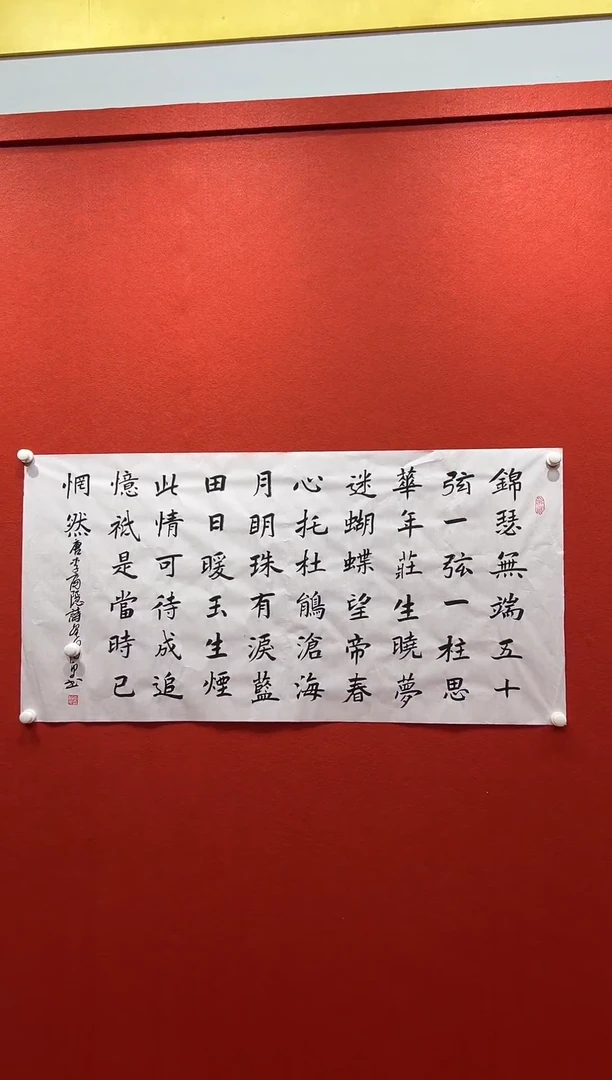 錦瑟無端五十
弦一弦一柱思
華年莊生曉夢
迷蝴蝶望帝春
心托杜鵑滄海
月明珠有淚藍
田日暖玉生煙
此情可待成追
憶祇是當時已
惘然
唐李商隱詩